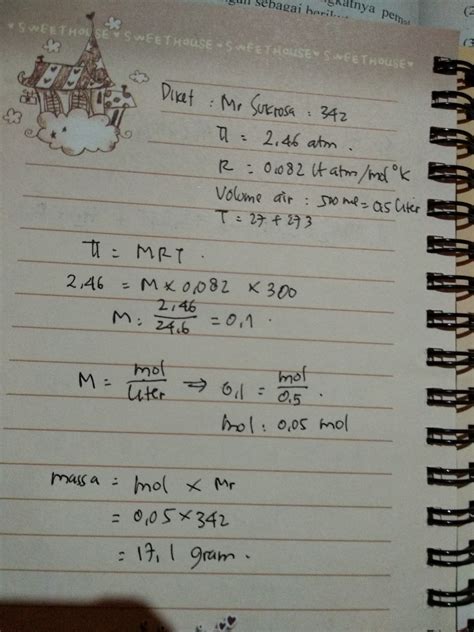 sebagai
SWEETHOUSE ♥ SWEETHOUSE ♥ SWEETHOUSE ♥ SWEETHOUSE ♥
Diket : Mr Sukrosa : 342
π = 2,46 atm.
R = 0,082 lt atm/mol °K
Volume air : 500 ml = 0,5 liter
T = 27 + 273
π = MRT.
2,46 = M x 0,082 x 300
M : 2,46/24,6 = 0,1 .
M = mol/liter ⇒ 0,1 = mol/0,5 .
mol : 0,05 mol
massa = mol x Mr
= 0,05 x 342
= 17,1 gram .